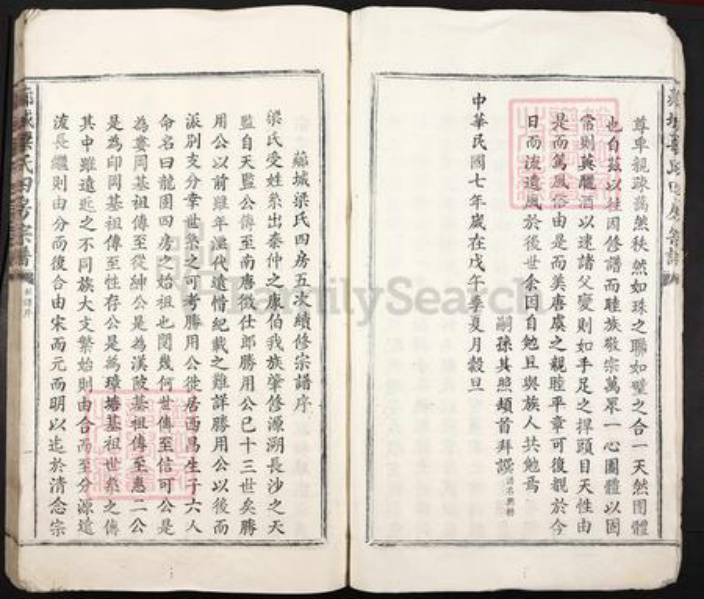 尊卑親疎藹然秩然如珠之聯如璧之合一天然團體
也自茲以往因修譜而睦族敬宗萬眾一心團體以固
常則萸臘酒以速諸父變則如手足之捍頭目天性由
是而篤風俗由是而美唐虞之親睦平章可復覩於今
日而流遺風於後世余因自勉且與族人共勉焉
嗣孫其照頓首拜譔
中華民國七年歲在戊午季夏月穀旦
梁氏四房宗譜
城梁氏四房五次續修宗譜序
梁氏受姓系出秦仲之康伯我族肇修源溯長沙之天
監自天監公傳至南唐徵仕郎勝用公已十三世矣勝
用公以前雖年湮代遠惜紀載之難詳勝用公以後而
派別支分幸世系之可考勝用公徙居西昌生子六人
命名曰龍圖四房之始祖也閱幾何世傳至信可公是
為蓼岡基祖傳至從紳公是為漢陂基祖傳至惠二公
是為印岡基祖傳至性存公是為璋塘基祖世系之傳
其中雖遠近之不同族大支繁始則由合而至分源遠
流長繼則由分而復合由宋而元而明以迄於清念宗
FamilySearch